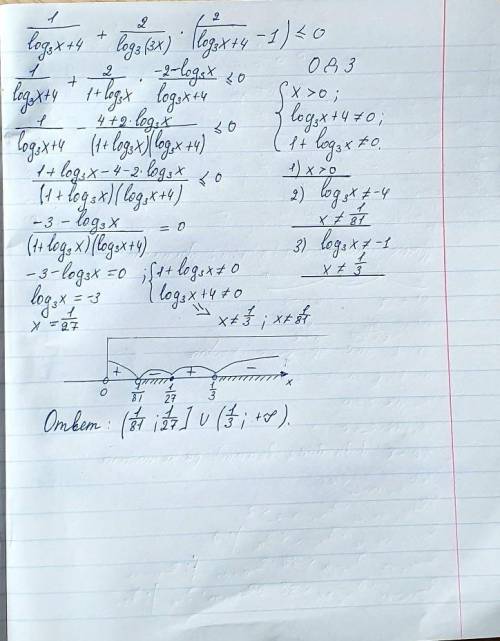 1/(log₃x+4) + 2/log₃(3x) · (2/(log₃x+4) -1) ≤ 0
1/(log₃x+4) + 2/(1+log₃x) · (-2-log₃x)/(log₃x+4) ≤ 0
1/(log₃x+4) - (4+2·log₃x)/((1+log₃x)(log₃x+4)) ≤ 0
(1+log₃x-4-2·log₃x)/((1+log₃x)(log₃x+4)) ≤ 0
(-3-log₃x)/((1+log₃x)(log₃x+4)) = 0
-3-log₃x=0 ; { 1+log₃x≠0
log₃x=-3 log₃x+4≠0
x=1/27 ⇒ x≠1/3 ; x≠1/81
ОДЗ
{ x>0;
log₃x+4≠0;
1+log₃x≠0.
1) x>0
2) log₃x≠-4
x≠1/81
3) log₃x≠-1
x≠1/3
+ - + -
0 1/81 1/27 1/3 x
Ответ: (1/81 ; 1/27] ∪ (1/3 ; +∞).